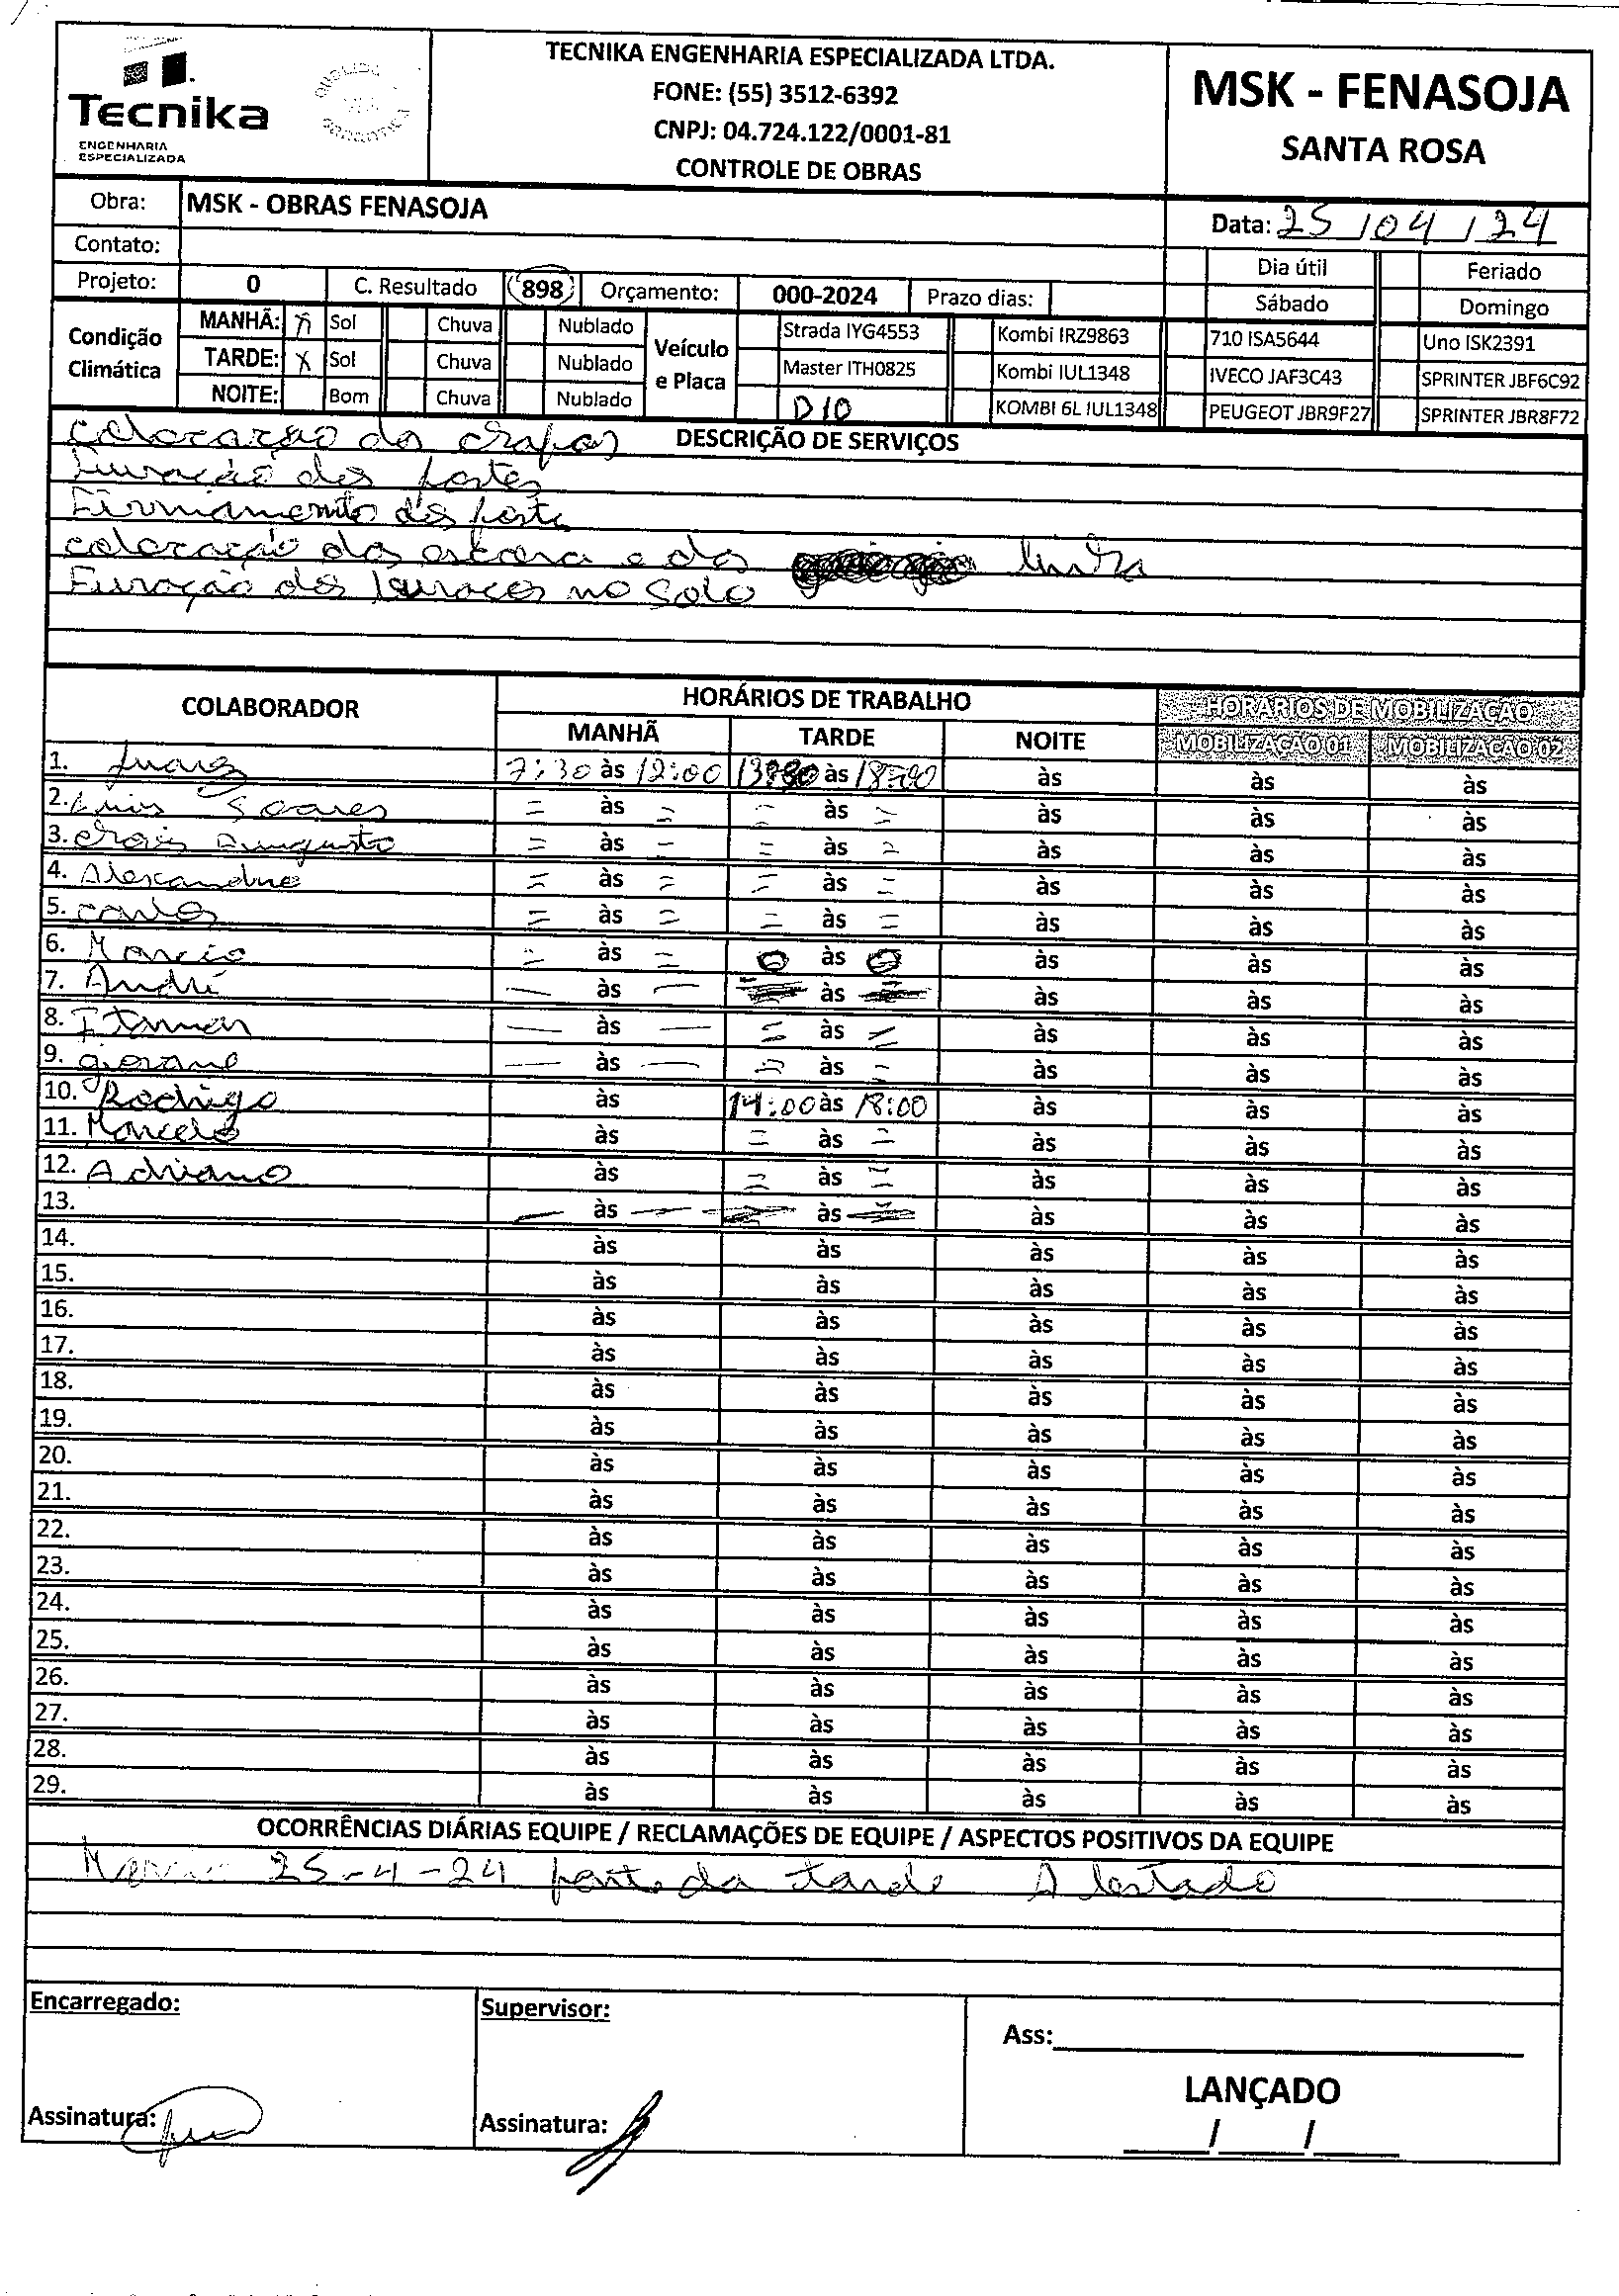 Tecnika
ENGENHARIA
ESPECIALIZADA
TECNIKA ENGENHARIA ESPECIALIZADA LTDA.
FONE: (55) 3512-6392
CNPJ: 04.724.122/0001-81
CONTROLE DE OBRAS
MSK - FENASOJA
SANTA ROSA
Obra: MSK - OBRAS FENASOJA
Data: 25/04/24
Contato:
Dia útil Feriado
Projeto: 0 C. Resultado 898 Orçamento: 000-2024 Prazo dias:
Sábado Domingo
Condição Climática
MANHÃ: X Sol Chuva Nublado
TARDE: X Sol Chuva Nublado
NOITE: Bom Chuva Nublado
Veículo e Placa
Strada IYG4553 Kombi IRZ9863 710 ISA5644 Uno ISK2391
Master ITH0825 Kombi IUL1348 IVECO JAF3C43 SPRINTER JBF6C92
D10 KOMBI 6L IUL1348 PEUGEOT JBR9F27 SPRINTER JBR8F72
DESCRIÇÃO DE SERVIÇOS
colocação do chapas
Furação dos postes
Firmamento dos poste
colocação das escora e da
Furação dos buracos no solo
COLABORADOR HORÁRIOS DE TRABALHO HORÁRIOS DE MOBILIZAÇÃO
MANHÃ TARDE NOITE MOBILIZAÇÃO 01 MOBILIZAÇÃO 02
1. Juarez 7:30 às 12:00 13:30 às 18:00 às às às
2. Luis Soares = às = = às = às às às
3. Augusto = às = = às = às às às
4. Alexandre = às = = às = às às às
5. Carlos = às = = às = às às às
6. Marcio = às = 0 às 0 às às às
7. André — às — às às às às
8. — às — = às = às às às
9. giovane — às — = às = às às às
10. Rodrigo às 14:00 às 18:00 às às às
11. Marcelo às = às = às às às
12. Adriano às = às = às às às
13. — às — às às às às
14. às às às às às
15. às às às às às
16. às às às às às
17. às às às às às
18. às às às às às
19. às às às às às
20. às às às às às
21. às às às às às
22. às às às às às
23. às às às às às
24. às às às às às
25. às às às às às
26. às às às às às
27. às às às às às
28. às às às às às
29. às às às às às
OCORRÊNCIAS DIÁRIAS EQUIPE / RECLAMAÇÕES DE EQUIPE / ASPECTOS POSITIVOS DA EQUIPE
Marcio 25-4-24 parte da tarde Atestado
Encarregado:
Supervisor:
Ass:
LANÇADO
Assinatura:
Assinatura:
/ /